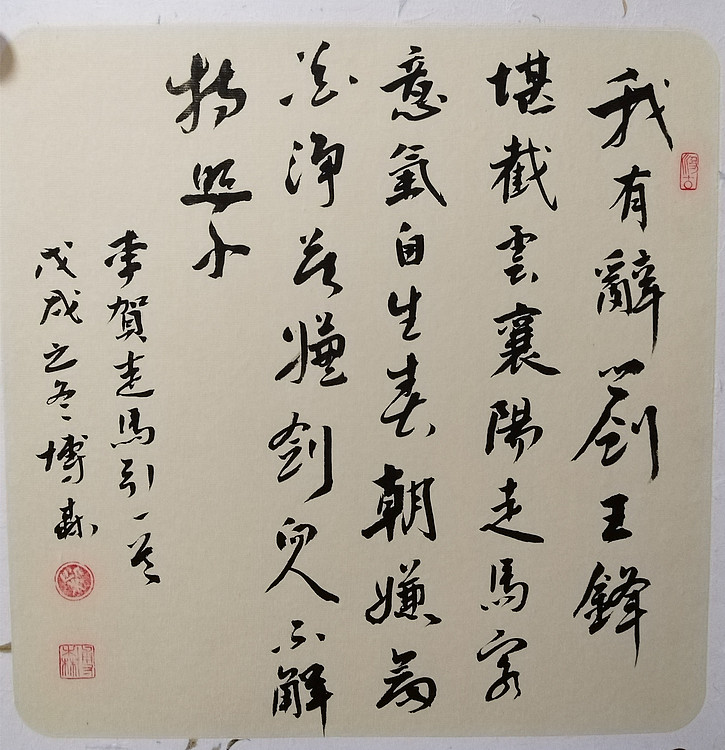 我有辭鄉劍王鋒
堪截雲襄陽走馬客
意氣自生春朝嫌
花淨暮嫌劍向人不解
持照身
李賀走馬引一首
戊戌之冬博